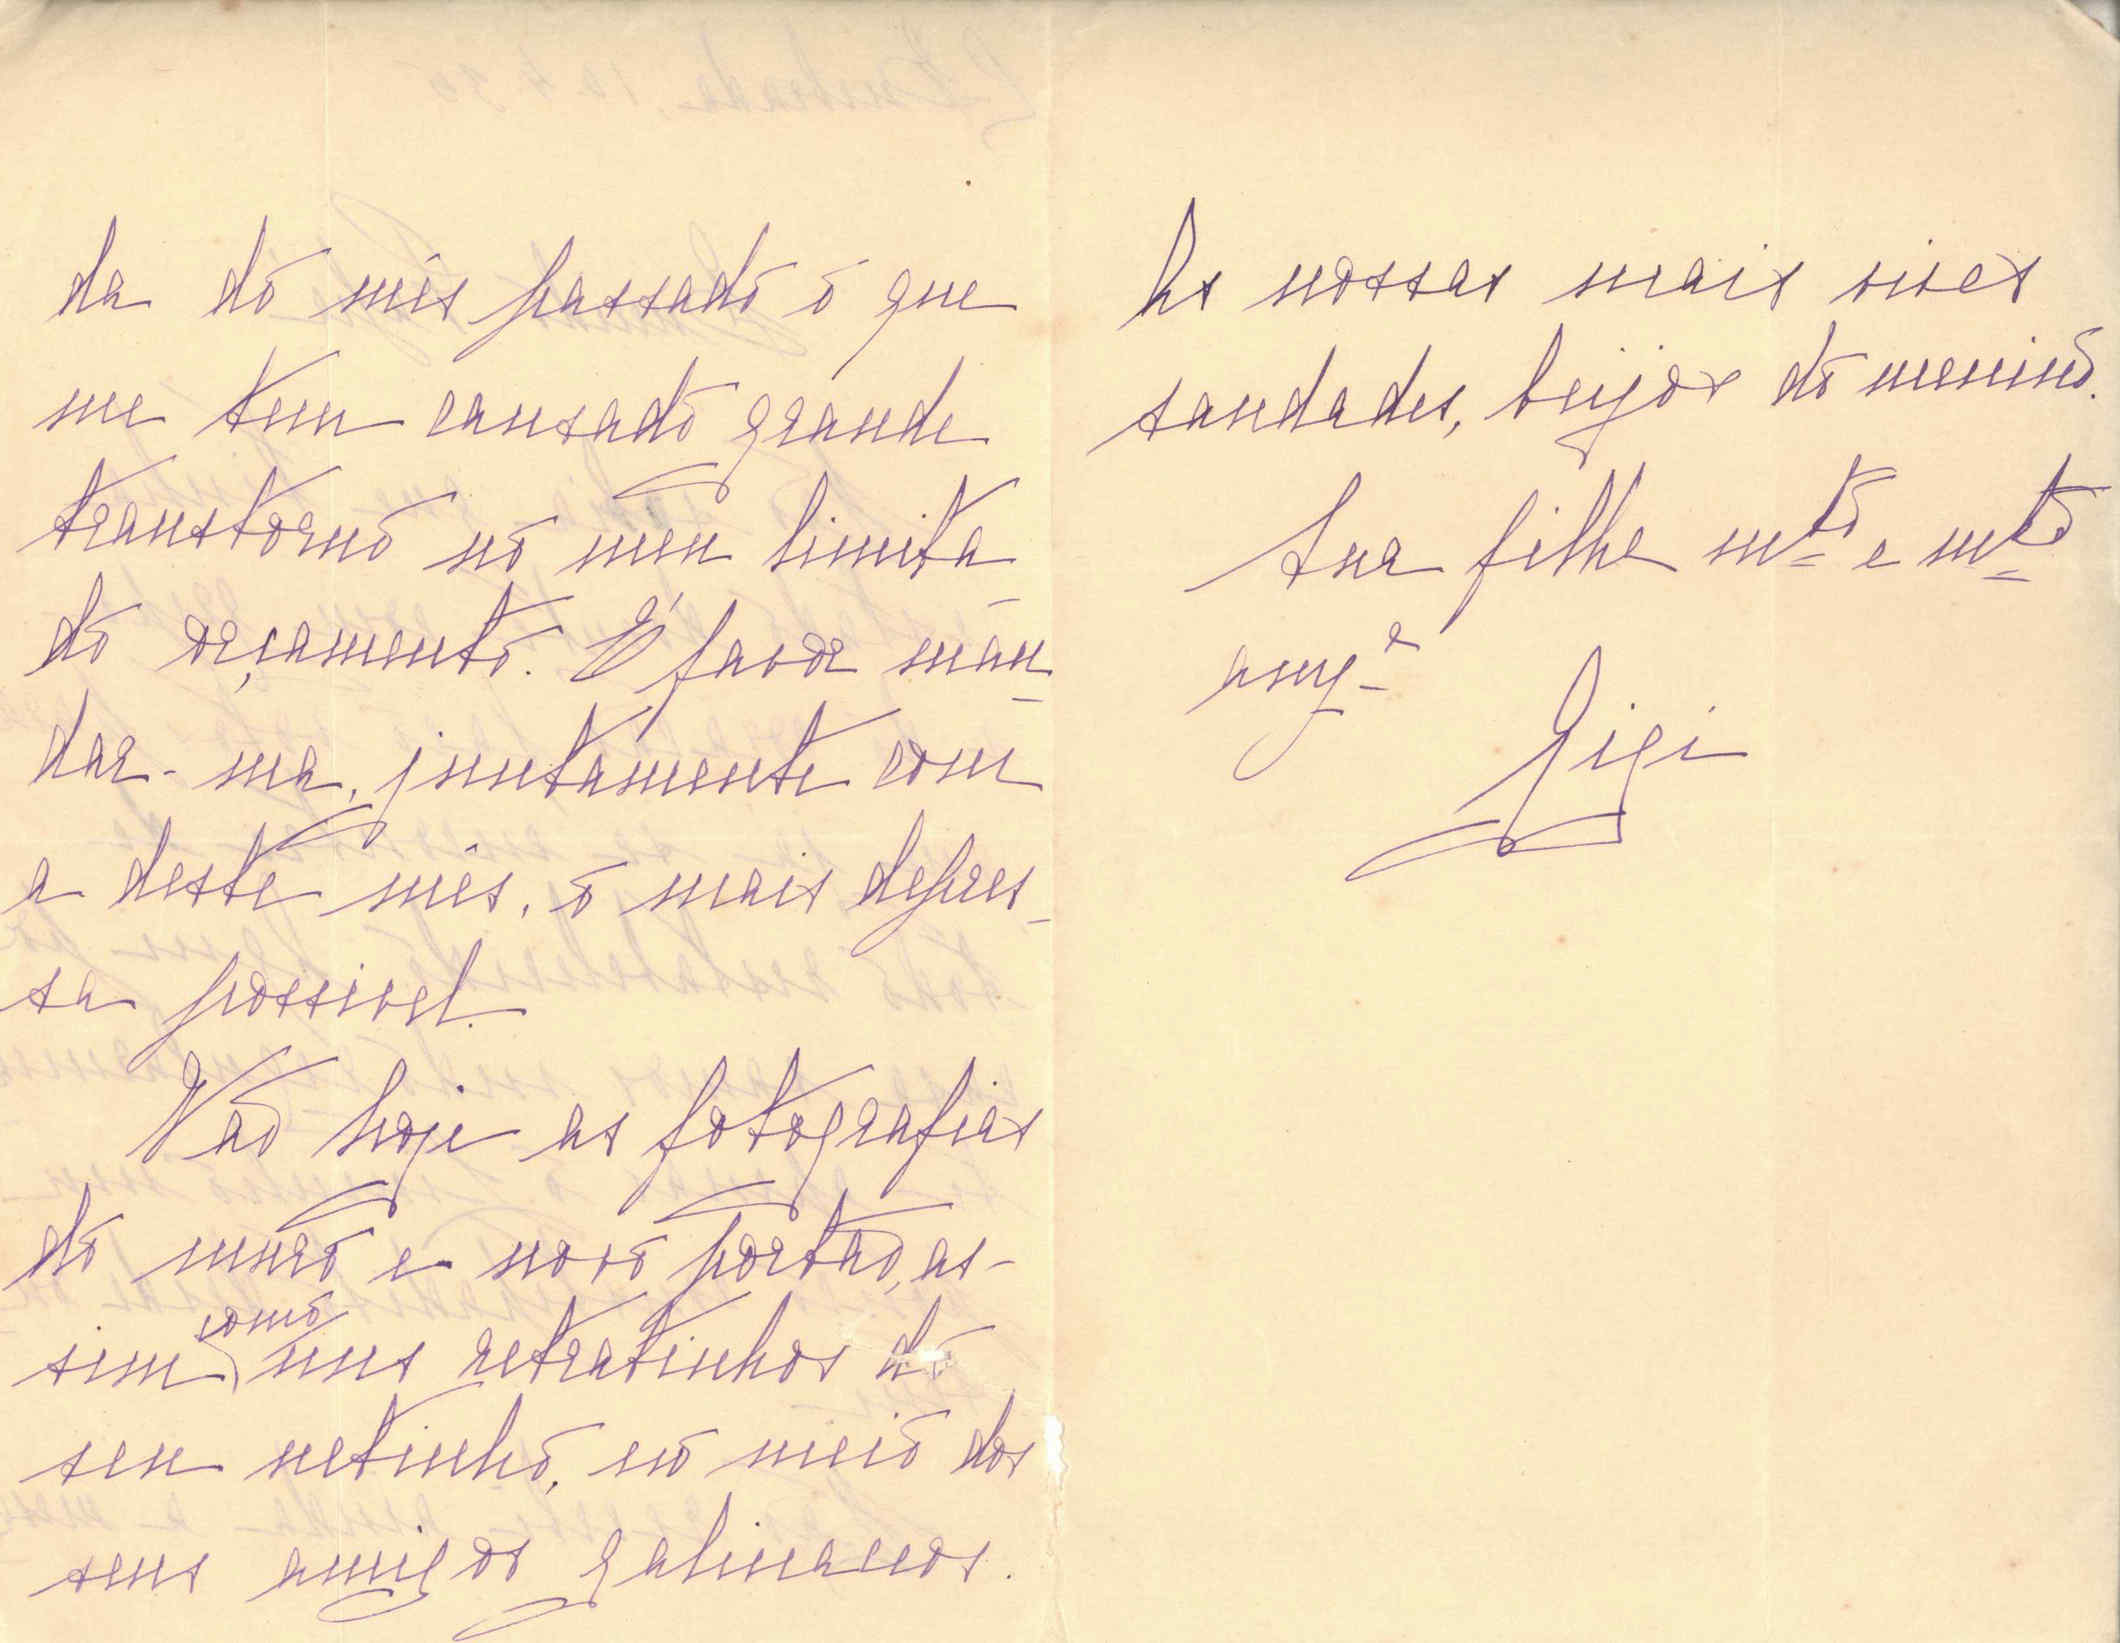 da do mês passado o que
me tem causado grande
transtorno no meu limita-
do orçamento. É favor man-
dar-ma, juntamente com
a deste mês, o mais depres-
sa possivel.
Vão hoje as fotografias
do muro e novo portão, as-
sim como uns retratinhos do
seu netinho, no meio dos
seus amigos galinaceos.
As nossas mais vivas
saudades, beijos do menino.
Sua filha mto e mto
amga
Gigi